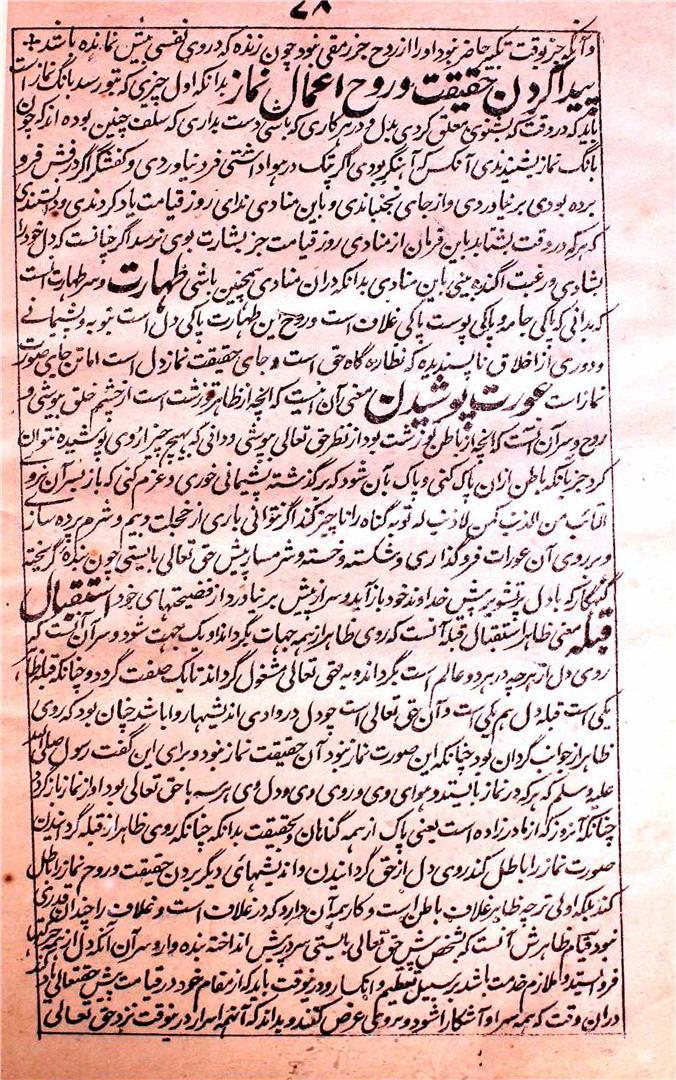 ۲۸
و آنکه جز بوقت تکبیر حاضر نبود او را از روح جز رمقی نبود چون زنده که در وی نفسی بیش نمانده باشد
پیدا کردن حقیقت و روح اعمال نماز بدانکه اول چیزی که بتو رسد بانگ نماز است
باید که در وقت که بشنوی معلق گردی بدل و در هر کاری که باشی دست بداری که سلف چنین بوده اند که چون
بانگ نماز بشنیدندی آنکس که آهنگر بودی اگر پتک در هوا داشتی فرو نیاوردی و کفشگر اگر درفش فرو
برده بودی بر نیاوردی و از جای بجنبیدندی و باین منادی ندای روز قیامت یاد کردندی و دانستندی
که هر که در وقت بشتابد باین فرمان از منادی روز قیامت جز بشارت بوی نرسد اگر چنانست که دل خود را
بشادی و رغبت آگنده بینی باین منادی بدانکه در ان منادی همچنین باشی طهارت و سر طهارت است
که بدانی که پاکی جامه و پاکی پوست پاکی غلاف است و روح این طهارت پاکی دل است بتوبه و پشیمانی
و دوری از اخلاق ناپسندیده که نظاره گاه حق است و جای حقیقت نماز دل است اما تن جای صورت
نماز است عورت پوشیدن معنی آن اینست که انچه از ظاهر تو زشت است از چشم خلق بپوشی و
روح و سر آن آنست که انچه از باطن تو زشت بود از نظر حق تعالی بپوشی و دانی که هیچ چیز از وی پوشیده نتوان
کرد جز بانکه باطن از ان پاک کنی و پاک بآن شود که بر گذشته پشیمانی خوری و عزم کنی که باز بسر آن نروی
التائب من الذنب کمن لا ذنب له توبه گناه را ناچیز کند اگر نتوانی باری از خجلت و بیم و شرم پرده ساز
و بر روی آن عورات فرو گذاری و شکسته و خسته و شرمسار پیش حق تعالی بایستی چون بنده گریخته
گنهگار که با دل پر تشویر پیش خداوند خود باز آید و سر از پیش بر نیارد از فضیحتهای خود استقبال
قبله معنی ظاهر استقبال قبله آنست که روی ظاهر از همه جهات بگرداند و یک جهت شود و سر آن آنست که
روی دل از هر چه در هر دو عالم است بگرداند و به حق تعالی مشغول گرداند تا یک صفت گردد و چنانکه قبله ظاهر
یکی است قبله دل هم یکی است و آن حق تعالی است چو دل در وادی اندیشها روا باشد چنان بود که روی
ظاهر از جوانب گردان بود چنانکه این صورت نماز نبود آن حقیقت نماز نبود و برای این گفت رسول صلی الله
علیه وسلم که هر که در نماز بایستد و هوای وی و روی وی و دل وی هر سه با حق تعالی بود او از نماز باز گردد
چنانکه آنروز که از مادر زاده است یعنی پاک از همه گناهان و بحقیقت بدانکه چنانکه روی ظاهر از قبله گردانیدن
صورت نماز را باطل کند روی دل از حق گردانیدن و اندیشهای دیگر بردن حقیقت و روح نماز را باطل
کند بلکه اولی تر چه ظاهر غلاف باطن است و کار همه آن دارد که در غلاف است و غلاف را چندان قدری
نبود قیام ظاهرش آنست که بشخص پیش حق تعالی بایستی سر در پیش انداخته بنده وار و سر آن آنکه دل از همه حرکتها
فرو ایستد و ملازم خدمت باشد بر سبیل تعظیم و انکسار و درینوقت باید که از مقام خود در قیامت پیش حقتعالی یاد کند
در ان وقت که همه سر او آشکارا شود و بر وی عرض کنند و بداند که آنهمه اسرار درینوقت نزد حق تعالی